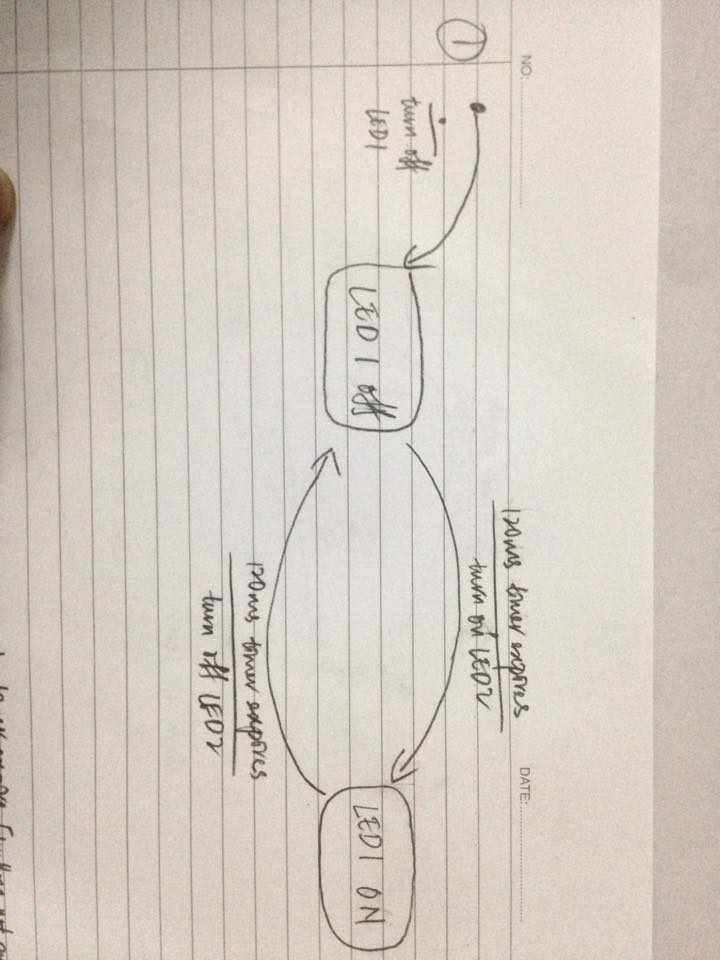 NO:
DATE:
1
turn off
LED1
LED1 off
120ms timer expires
turn on LED2
120ms timer expires
turn off LED2
LED1 ON